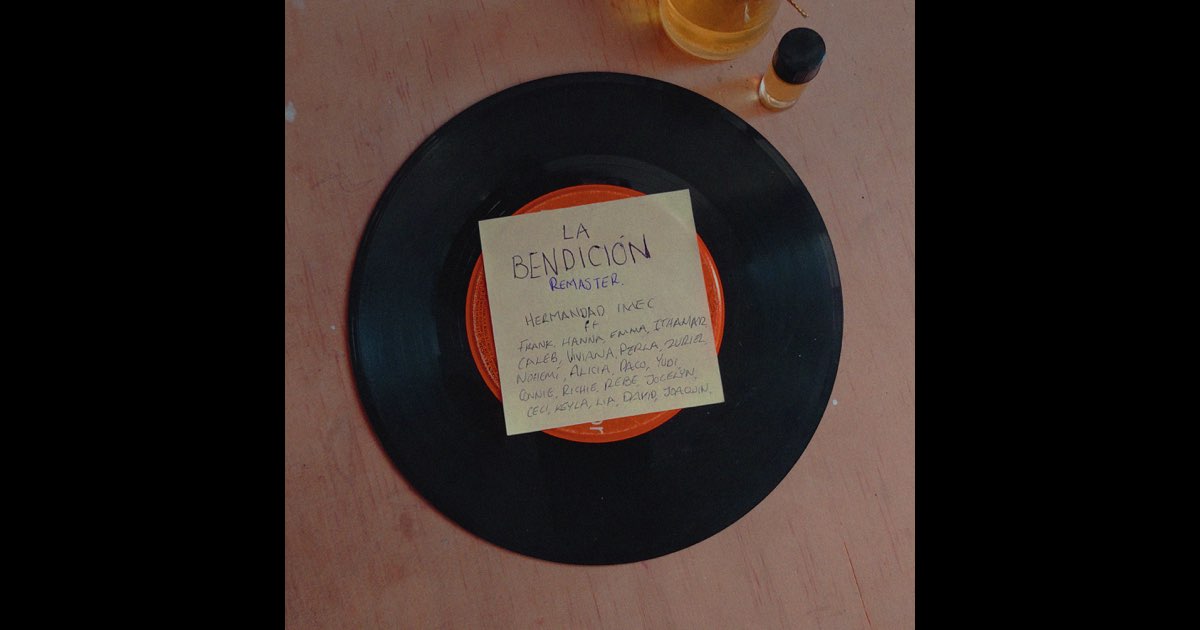 LA
BENDICIÓN
REMASTER.
HERMANDAD IMEC
Ft
FRANK, HANNA, EMMA, ITHAMAR,
CALEB, VIVIANA, PERLA, ZURIEL,
NOHEMÍ, ALICIA, PACO, YUDI,
CONNIE, RICHIE, REBE, JOCELYN,
CECI, KEYLA, LIA, DAVID, JOAQUIN.
or